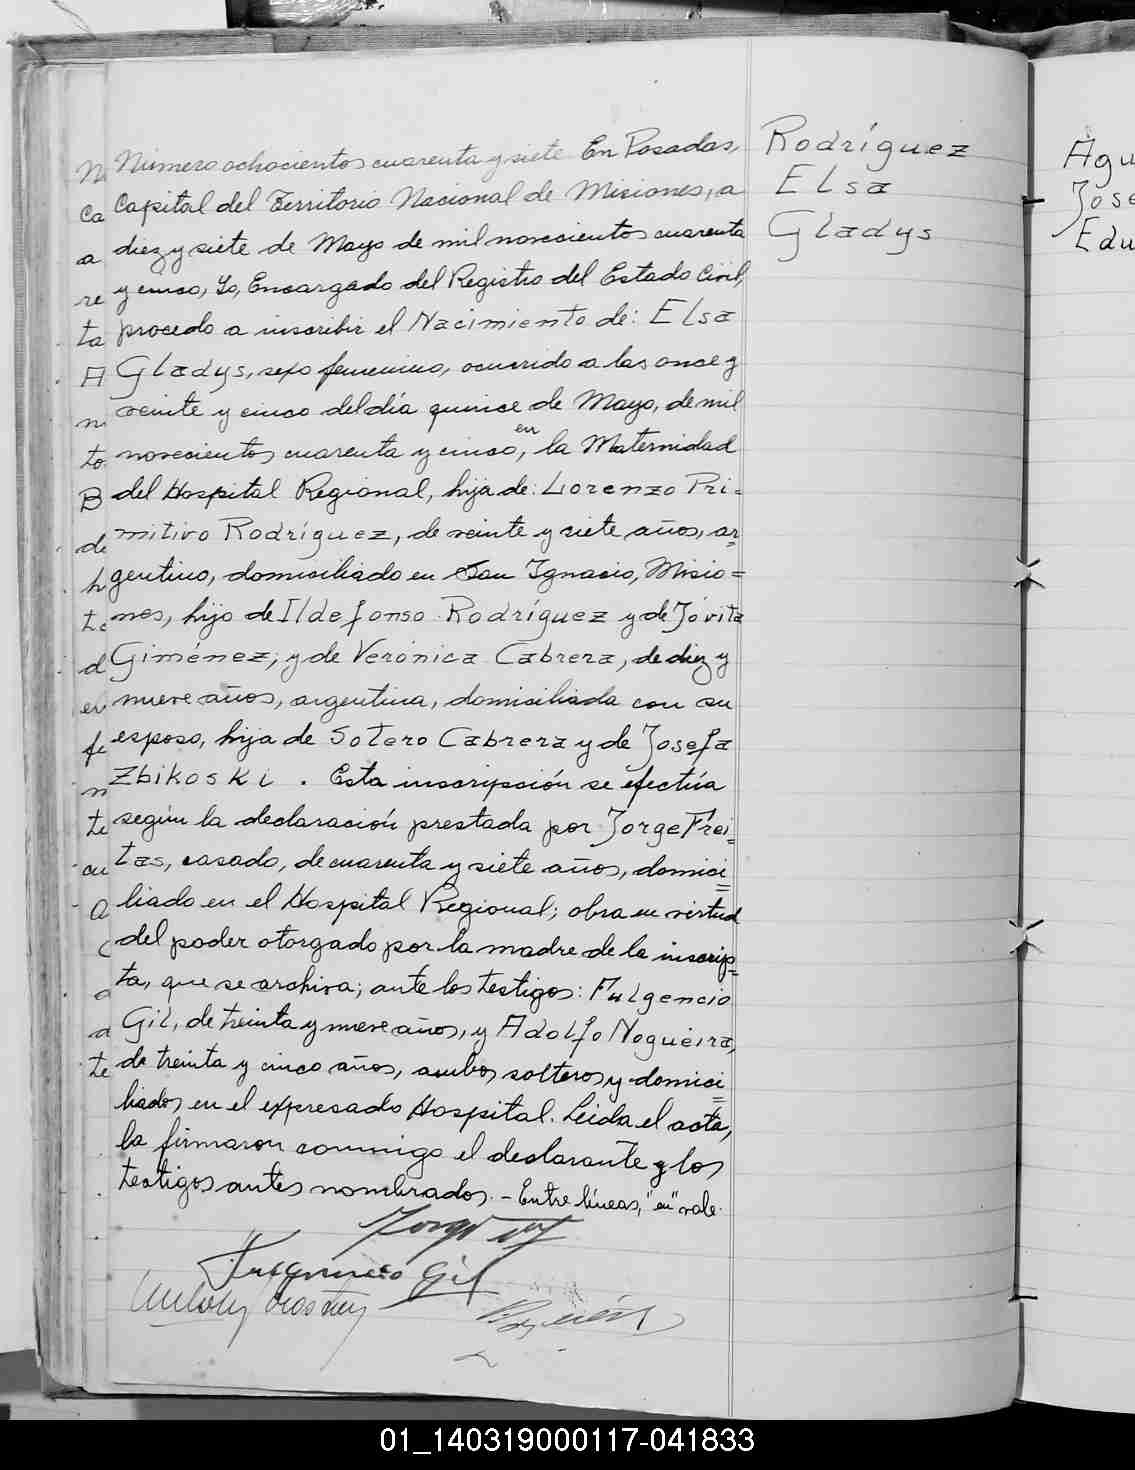 Número ochocientos cuarenta y siete En Posadas,
Capital del Territorio Nacional de Misiones, a
diez y siete de Mayo de mil novecientos cuarenta
y cinco, Yo, Encargado del Registro del Estado Civil,
procedo a inscribir el Nacimiento de: Elsa
Gladys, sexo femenino, ocurrido a las once y
veinte y cinco del día quince de Mayo, de mil
en
novecientos cuarenta y cinco, la Maternidad
del Hospital Regional, hija de: Lorenzo Pri=
mitivo Rodríguez, de veinte y siete años, ar=
gentino, domiciliado en San Ignacio, Misio=
nes, hijo de Ildefonso Rodríguez y de Jóvita
Giménez; y de Verónica Cabrera, de diez y
nueve años, argentina, domiciliada con su
esposo, hija de Sotero Cabrera y de Josefa
Zbikoski . Esta inscripción se efectúa
según la declaración prestada por Jorge Frei=
tas, casado, de cuarenta y siete años, domici=
liado en el Hospital Regional; obra en virtud
del poder otorgado por la madre de la inscrip=
ta, que se archiva; ante los testigos: Fulgencio
Gil, de treinta y nueve años, y Adolfo Nogueira,
de treinta y cinco años, ambos solteros y domici=
liados en el expresado Hospital. Leída el acta,
la firmaron conmigo el declarante y los
testigos antes nombrados. - Entre líneas, "en" vale.
Gil
Rodríguez
Elsa
Gladys
Agu
Jose
Edu
N
Ca
a
re
ta
A
n
to
B
de
h
te
d
en
fe
n
te
cu
a
c
a
a
te
01_140319000117-041833